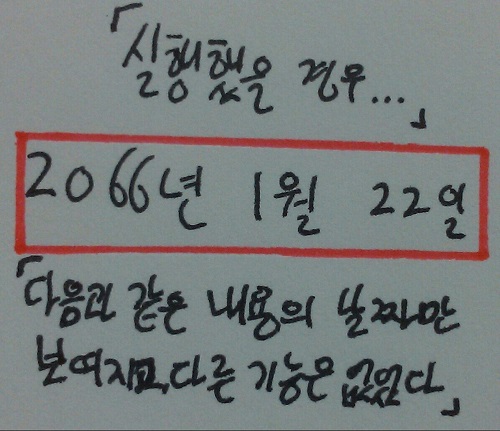 「실행했을 경우...」
2066년 1월 22일
「다음과 같은 내용의 날짜만
보여지고,다른 기능은 없었다」